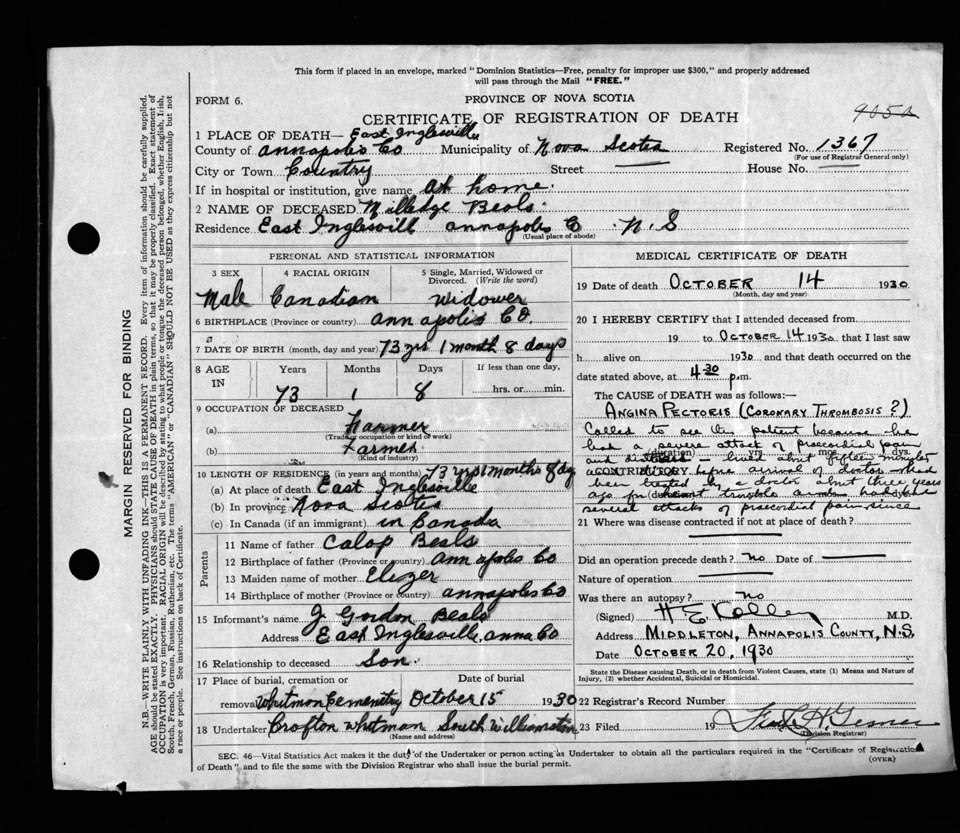 This form if placed in an envelope, marked "Dominion Statistics—Free, penalty for improper use $300," and properly addressed
will pass through the Mail "FREE."
FORM 6.
PROVINCE OF NOVA SCOTIA
9052
CERTIFICATE OF REGISTRATION OF DEATH
1 PLACE OF DEATH— East Inglesville
County of Annapolis Co Municipality of Nova Scotia Registered No. 1367
(For use of Registrar General only)
City or Town Country Street House No.
If in hospital or institution, give name at home.
2 NAME OF DECEASED Milledge Beals.
Residence East Inglesvill annapolis Co N.S
(Usual place of abode)
PERSONAL AND STATISTICAL INFORMATION
3 SEX 4 RACIAL ORIGIN 5 Single, Married, Widowed or Divorced. (Write the word)
Male Canadian Widower
6 BIRTHPLACE (Province or country) annapolis CO.
7 DATE OF BIRTH (month, day and year) 73 yrs 1 month 8 days
8 AGE IN Years Months Days If less than one day,
73 1 8 hrs. or min.
9 OCCUPATION OF DECEASED
(a) Farmer
(Trade, occupation or kind of work)
(b) Farmer
(Kind of industry)
10 LENGTH OF RESIDENCE (in years and months) 73 yrs 1 months 8 dy
(a) At place of death East Inglesville
(b) In province Nova Scotia
(c) In Canada (if an immigrant) in Canada
Parents
11 Name of father Calap Beals
12 Birthplace of father (Province or country) Annapolis Co
13 Maiden name of mother Elezer
14 Birthplace of mother (Province or Country) annapolis Co
15 Informant's name J Gordon Beals
Address East Inglesville, anna Co
16 Relationship to deceased Son.
17 Place of burial, cremation or Date of burial
removal Whitman Cemenitry October 15 1930
18 Undertaker Crofton Whitman South Williamston
(Name and address)
MEDICAL CERTIFICATE OF DEATH
19 Date of death OCTOBER 14 1930
(Month, day and year)
20 I HEREBY CERTIFY that I attended deceased from
19 to OCTOBER 14 1930 that I last saw
h alive on 1930 and that death occurred on the
date stated above, at 4-30 p.m.
The CAUSE OF DEATH was as follows:—
ANGINA PECTORIS (CORONARY THROMBOSIS ?)
Called to see the patient because he
had a severe attack of praecordial pain
(duration) yrs. mos. dys.
and distress — lived about fifteen minutes
CONTRIBUTORY before arrival of doctor — had
been treated by a doctor about three years
ago for heart trouble and had had
several attacks of praecordial pain since
21 Where was disease contracted if not at place of death?
Did an operation precede death? No Date of
Nature of operation
Was there an autopsy? No
(Signed) H E Kelley M.D.
Address MIDDLETON, ANNAPOLIS COUNTY, N.S.
Date OCTOBER 20, 1930
State the Disease causing Death, or in death from Violent Causes, state (1) Means and Nature of
Injury, (2) whether Accidental, Suicidal or Homicidal.
22 Registrar's Record Number
23 Filed 19
(Division Registrar)
SEC. 46—Vital Statistics Act makes it the duty of the Undertaker or person acting as Undertaker to obtain all the particulars required in the "Certificate of Registration
of Death" and to file the same with the Division Registrar who shall issue the burial permit.
(OVER)
MARGIN RESERVED FOR BINDING
N.B.—WRITE PLAINLY WITH UNFADING INK—THIS IS A PERMANENT RECORD. Every item of information should be carefully supplied.
AGE should be stated EXACTLY. PHYSICIANS should STATE CAUSE OF DEATH in plain terms, so that it may be properly classified. Exact statement of
OCCUPATION is very important. RACIAL ORIGIN will be described by stating to what people or tongue the deceased person belonged, whether English, Irish,
Scotch, French, German, Russian, Ruthenian, etc. The terms "AMERICAN" or "CANADIAN" SHOULD NOT BE USED as they express citizenship but not
a race or people. See instructions on back of Certificate.